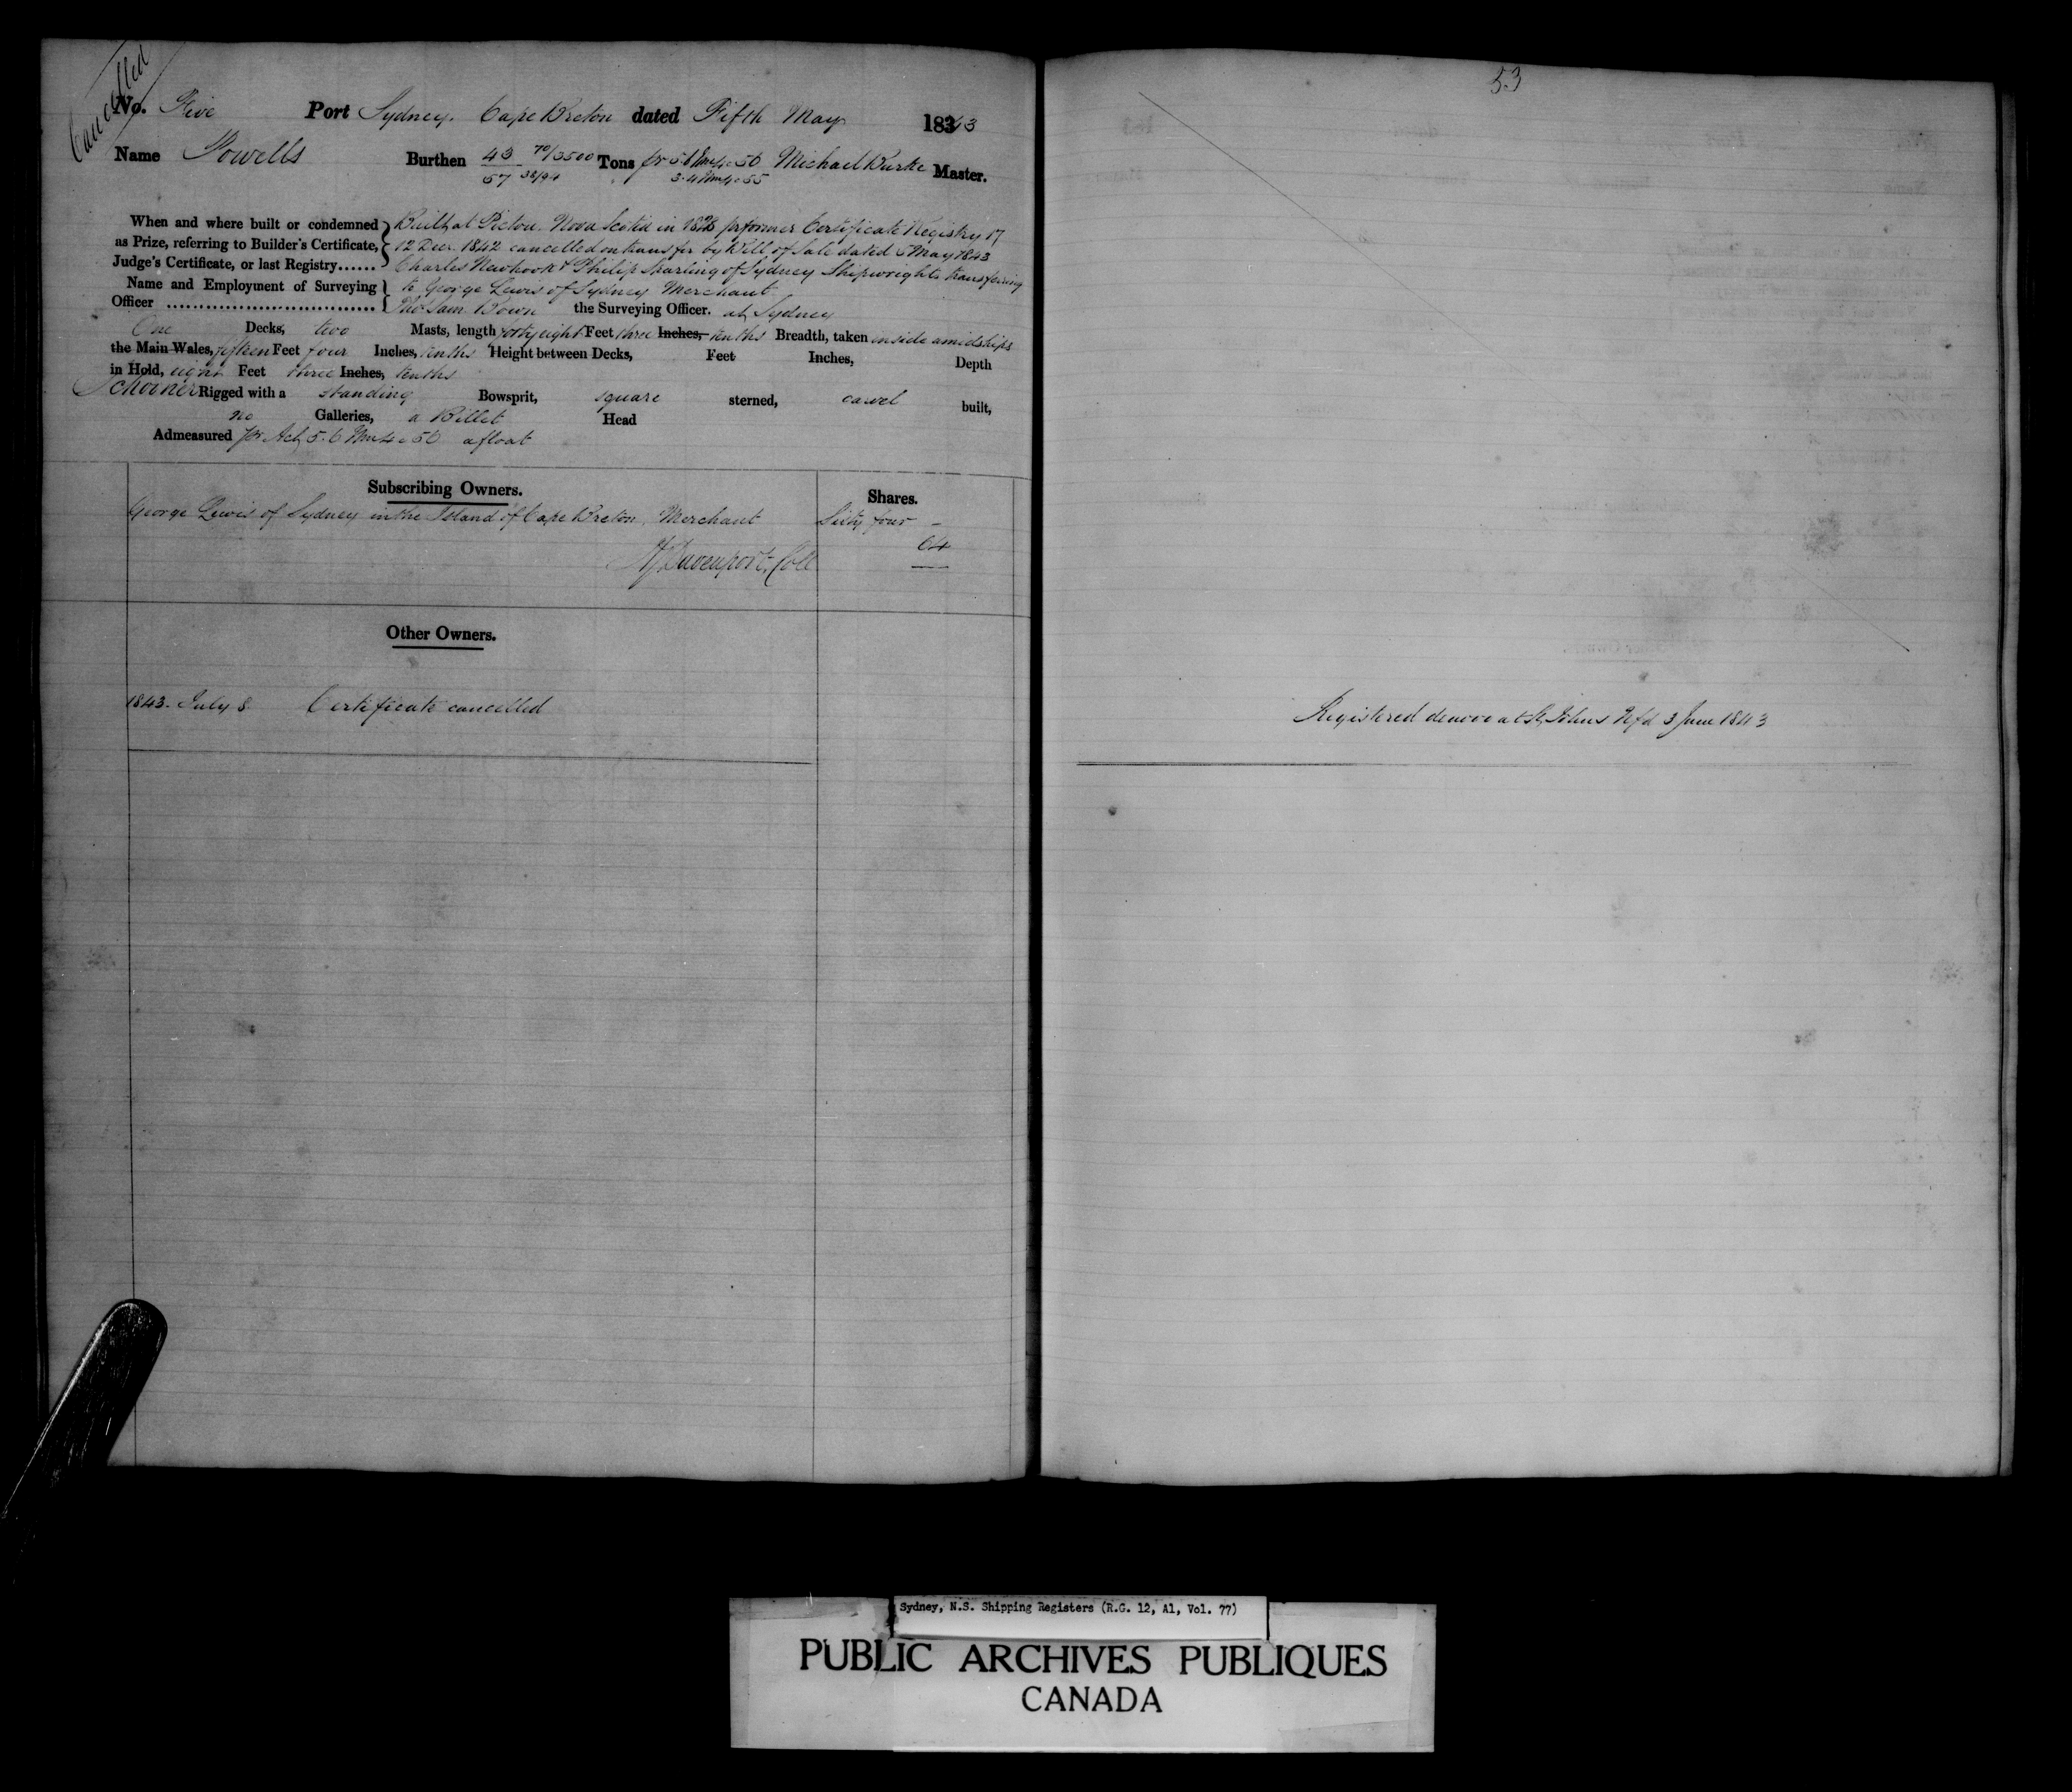 Cancelled
No. Five Port Sydney. Cape Breton dated Fifth May 1843
Name Powells Burthen 43 70/3500 Tons pr 5.6 Wm 4 c 56 Michael Burke Master.
57 38/94 3.4 Wm 4 c 55
When and where built or condemned Built at Pictou Nova Scotia in 1828 pr former Certificate Registry 17
as Prize, referring to Builder's Certificate, 12 Decr. 1842 cancelled on transfer by Bill of Sale dated 5 May 1843
Judge's Certificate, or last Registry...... Charles Newhook & Philip Sparling of Sydney Shipwrights transferring
Name and Employment of Surveying to George Lewis of Sydney Merchant
Officer .................................. Bown the Surveying Officer. at Sydney
One Decks, two Masts, length forty eight Feet three Inches, tenths Breadth, taken inside amidships
the Main Wales, fifteen Feet four Inches, tenths Height between Decks, Feet Inches, Depth
in Hold, eight Feet three Inches, tenths
Schooner Rigged with a standing Bowsprit, square sterned, carvel built,
no Galleries, a Billet Head
Admeasured pr Act 5.6 Wm 4 c 56 afloat
Subscribing Owners. Shares.
George Lewis of Sydney in the Island of Cape Breton, Merchant Sixty four -
Davenport. Coll 64
Other Owners.
1843. July 8. Certificate cancelled
53
Registered denovo at St. Johns Nfd 3 June 1843
Sydney, N.S. Shipping Registers (R.G. 12, A1, Vol. 77)
PUBLIC ARCHIVES PUBLIQUES
CANADA